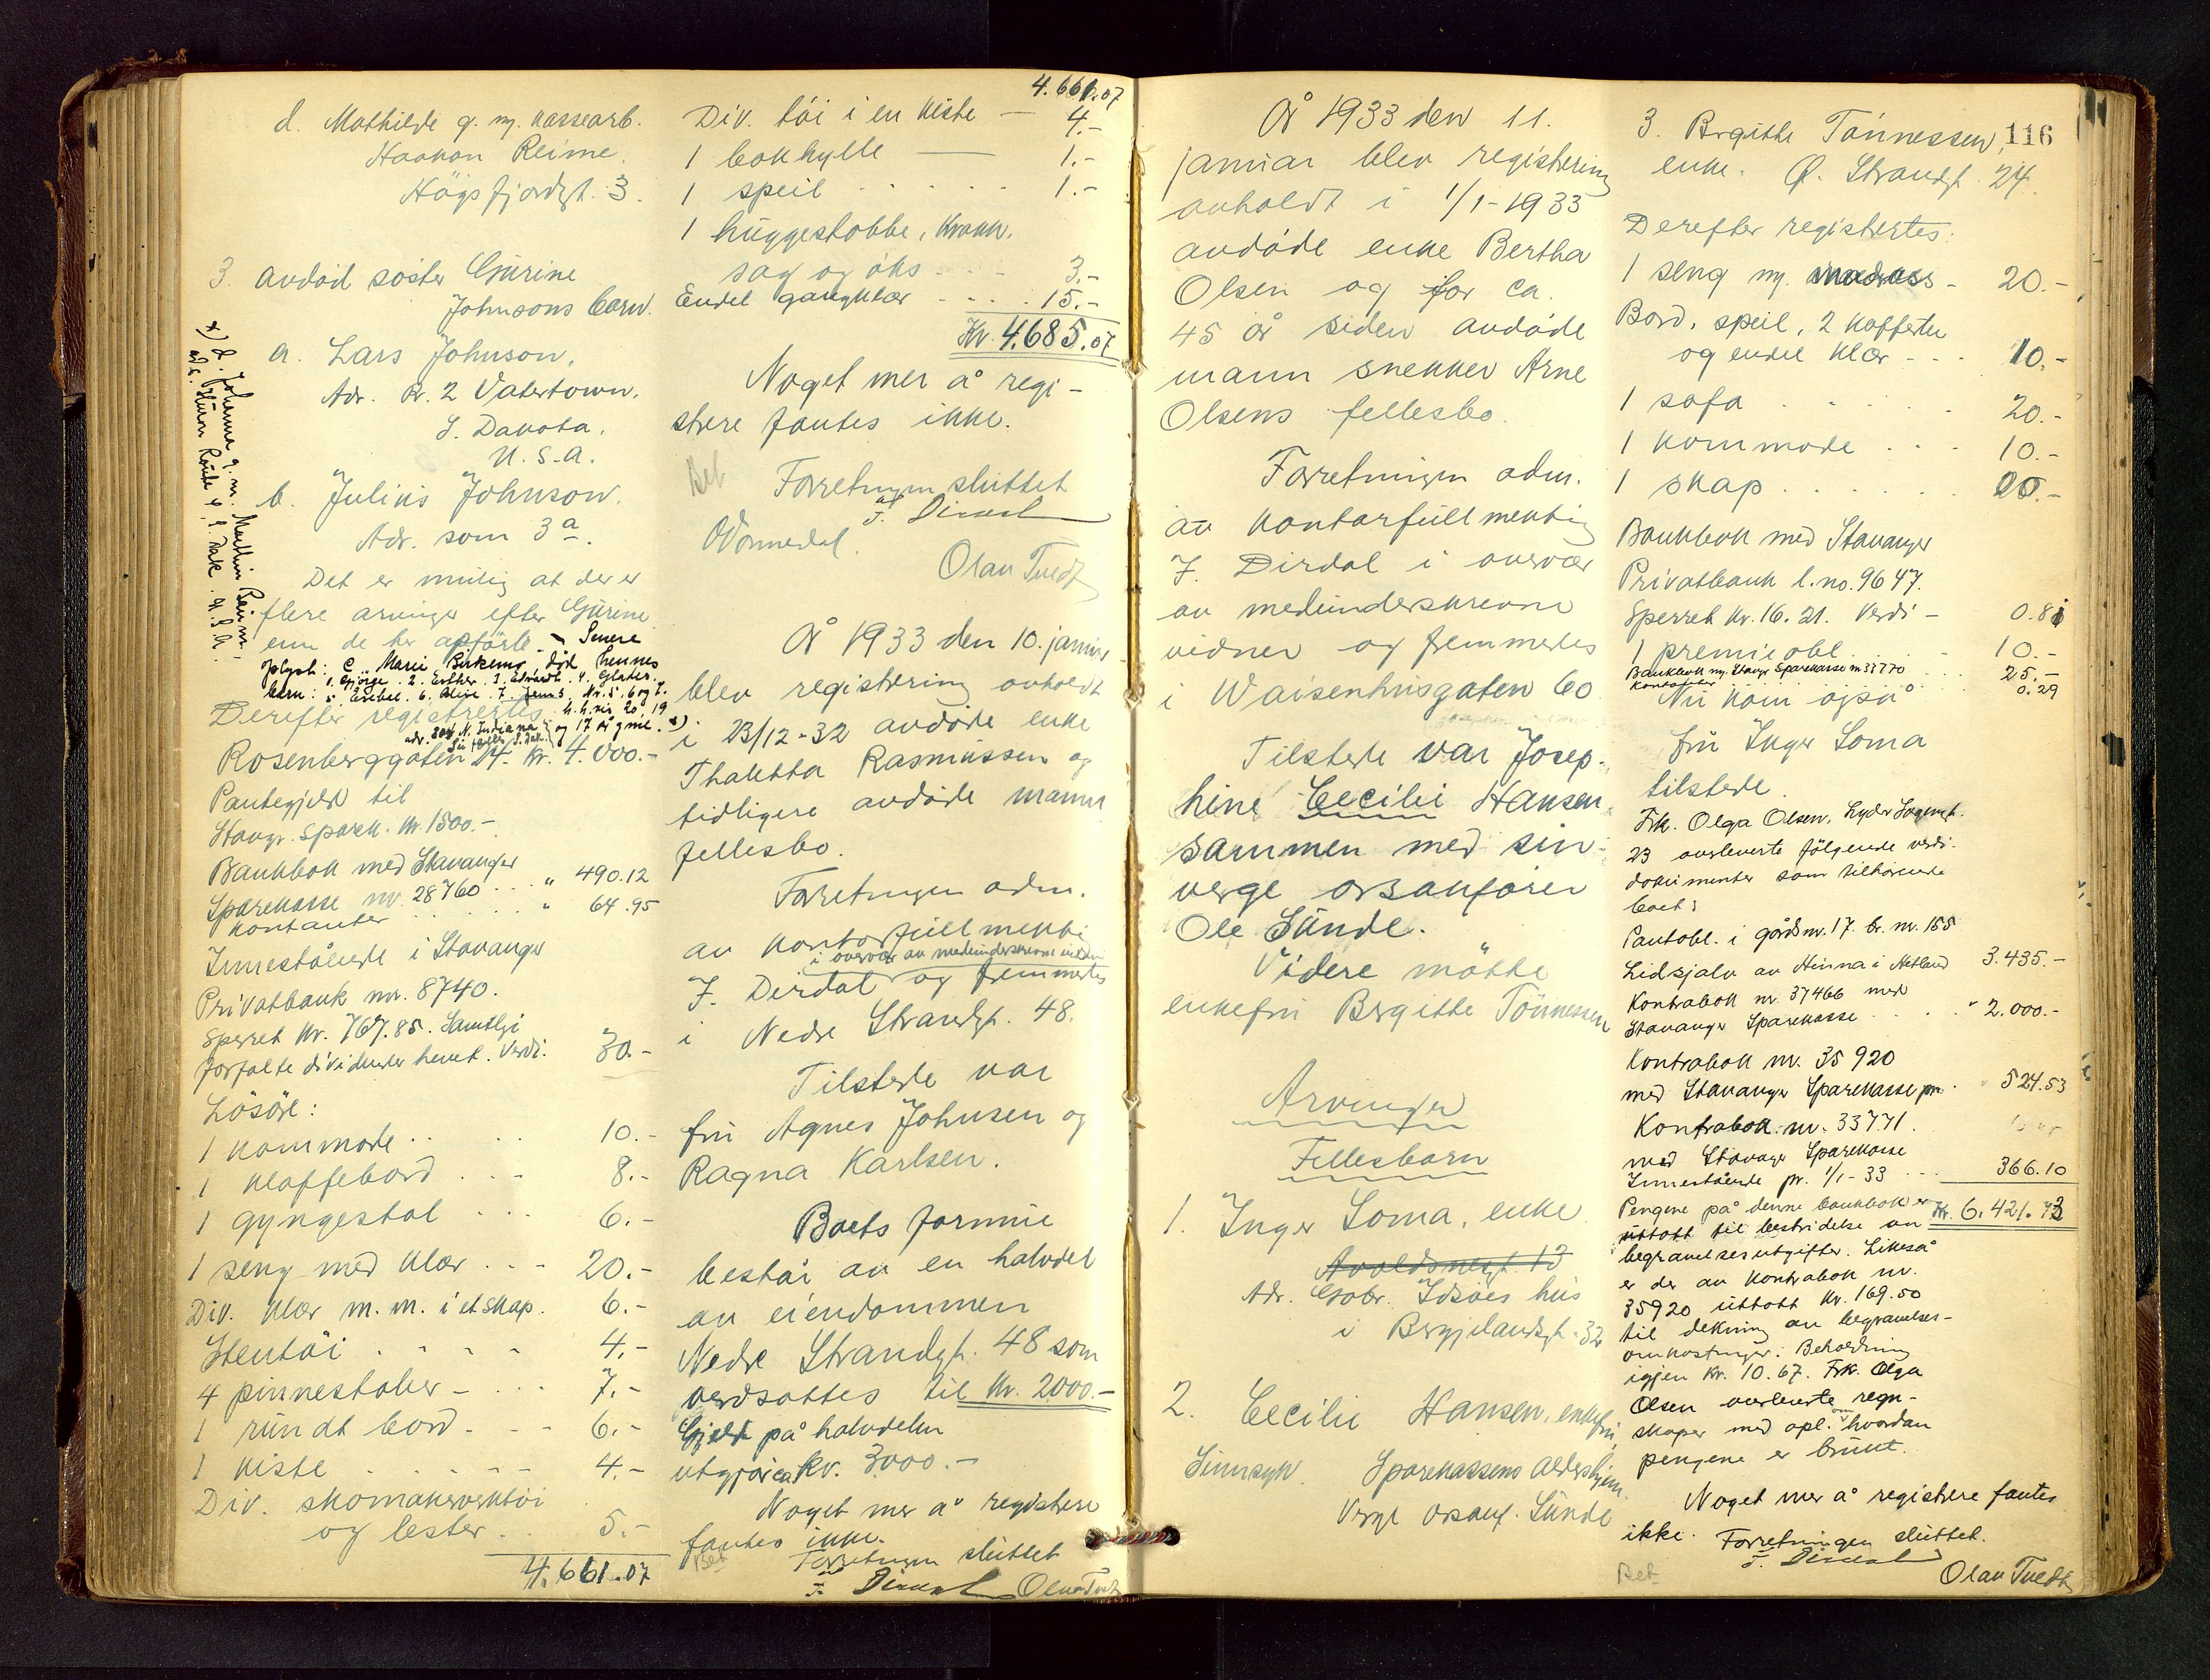 d. Mathilde g. m. kassearb.
Haakon Reime.
Högsfjordgt. 3.
3. avdöd söster Gurine
Johnsons barn.
a. Lars Johnson.
Adr. R. 2 Vatertown.
S. Dakota.
U.S.A.
b. Julius Johnson.
Adr. som 3 a.
Det er mulig at der er
flere arvinger efter Gurine
enn de her opförte. - Senere
oplyst: C. Marie Birkemo, död hennes
barn: 1. Györge. 2. Esther. 3. Edvardt. 4. Gladys.
5. Esebel. 6. Aline. 7. Jens. Nr. 5. 6 og 7.
h.h.vis 20, 19
og 17 år gml. x)
adr. 804 N. Indiana
Derefter registrertes
Rosenberggaten 24. kr. 4.000.-
Pantegjeld til
Stavgr. Sparek. kr. 1500.-
Bankbok med Stavanger
Sparekasse nr. 28760 . . . " 490.12
Kontanter . . . . " 64.95
Innestående i Stavanger
Privatbank nr. 8740.
Sperret kr. 767.85. Samtlige
forfalte dividender hevet. Verdi: 30.-
Lösöre:
1 kommode . . . . 10.-
1 klaffebord . . . 8.-
1 gyngestol . . . 6.-
1 seng med klær . . . 20.-
Div. klær m. m. i et skap. 6.-
Stentöi . . . . 4.-
4 pinnestoler - . . . 7.-
1 rundt bord . - - 6.-
1 kiste . . . . . 4.-
Div. skomakerverktöi
og lester . . 5.-
4.661.07
x) d. Johanna g. m. Martin Reim.-
adr. Huron Route 4. S. Dak. U.S.A.
4.661.07
Div. töi i en kiste — 4.-
1 bokhylle — 1.-
1 speil . . . . . . 1.-
1 huggestobbe, krakk,
sag og öks . . . . 3.-
Endel gangklær . . . . 15.-
Kr. 4.685.07
Noget mer å regi-
strere fantes ikke.
Bet
Forretningen sluttet
J. Dirdal
Olav Tvedt
År 1933 den 10. januar
blev registrering avholdt
i 23/12-32 avdöde enke
Thaletta Rasmussen og
tidligere avdöde manns
fellesbo.
Forretningen adm.
av kontorfullmektig
i overvær av medunderskrevne vidner
J. Dirdal og fremmertes
i Nedre Strandgt. 48.
Tilstede var
fru Agnes Johnsen og
Ragna Karlsen.
Boets formue
består av en halvdel
av eiendommen
Nedre Strandgt. 48 som
verdsattes til kr. 2000.-
Gjeld på halvdelen
utgjör ca. kr. 3000.-
Noget mer å registrere
fantes ikke.
Bet
Forretningen sluttet
J. Dirdal Olav Tvedt
År 1933 den 11.
januar blev registrering
avholdt i 1/1-1933
avdöde enke Bertha
Olsen og for ca.
45 år siden avdöde
mann snekker Arne
Olsens fellesbo.
Forretningen adm.
av kontorfullmektig
J. Dirdal i overvær
av medunderskrevne
vidner og fremmertes
i Waisenhusgaten 60
Tilstede var Josep-
hine Cecilie Hansen
sammen med sin
verge orsanförer
Ole Sunde.
Videre mötte
enkefru Bergitte Tönnessen
Arvinger
Fellesbarn
1. Inger Soma, enke
Avaldsnesgt. 13
Adr. Gabr. Idsöes hus
i Bergjelandsgt. 32
2. Cecilie Hansen, enkefru,
Sinnsyk. Sparekassens Aldershjem.
Verge orsanf. Sunde
3. Bergitte Tönnessen, 116
enke. Ö. Strandgt. 24.
Derefter registrertes:
1 seng m. madrass - 20.-
Bord, speil, 2 kofferter
og endel klær - - . 10.-
1 sofa . . . . . . 20.-
1 kommode . . . 10.-
1 skap . . . . . . 20.-
Bankbok med Stavanger
Privatbank l. no. 9647.
Sperret kr. 16.21. Verdi - 0.81
1 premieobl. . . . . 10.-
Bankbok m. Stavgr. Sparekasse nr 33770 . . . 25.-
Kontanter 0.29
Nu kom også
fru Inger Soma
tilstede.
Frk. Olga Olsen, Lyder Sagensgt.
23 overleverte fölgende verdi-
dokumenter som tilhörende
boet:
Pantobl. i gårdsnr. 17. br. nr. 155
Lidsjalv av Hinna i Hetland 3.435.-
Kontrabok nr. 37466 med
Stavanger Sparekasse . . . . " 2.000.-
Kontrabok nr. 35920
med Stavanger Sparekasse pr. . " 524.53
Kontrabok nr. 33771.
med Stavanger Sparekasse
Innestående pr. 1/1-33 . . . 366.10
Pengene på denne bankbok er kr. 6.421.73
uttatt til bestridelse av
begravelsesutgifter. Likeså
er der av kontrabok nr.
35920 uttatt kr. 169.50
til dekning av begravelses-
omkostninger. Beholdning
igjen kr. 10.67. Frk. Olga
Olsen overleverte regn-
skaper med opl. om hvordan
pengene er brukt.
Noget mer å registrere fantes
ikke. Forretningen sluttet.
J. Dirdal
Bet
Olav Tvedt